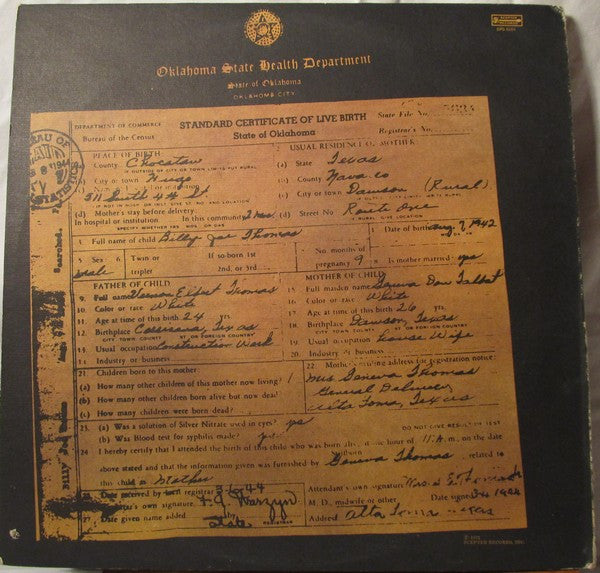 SCEPTER RECORDS
Oklahoma State Health Department
State of Oklahoma
OKLAHOMA CITY
DEPARTMENT OF COMMERCE
Bureau of the Census
STANDARD CERTIFICATE OF LIVE BIRTH
State of Oklahoma
State File No.
Registrar's No.
PLACE OF BIRTH
County Choctaw
IF OUTSIDE OF CITY OR TOWN LIMITS PUT RURAL
City or town Hugo
311 South 4th St.
(d) Mother's stay before delivery:
In hospital or institution In this community 2 Mos.
SPECIFY WHETHER YRS. MOS. OR DAYS
USUAL RESIDENCE OF MOTHER
(a) State Texas
(b) County Navarro
(c) City or town Dawson (Rural)
(d) Street No Route One
IF RURAL GIVE LOCATION
4 Full name of child Billy Joe Thomas
Date of birth Aug 7 1942
5 Sex male
6 Twin or triplet
If so-born 1st 2nd, or 3rd
No. months of pregnancy 9
Is mother married yes
FATHER OF CHILD
9. Full name Vernon Thomas
10. Color or race White
11. Age at time of birth 24 yrs
12. Birthplace Corsicana, Texas
CITY TOWN COUNTY ST OR FOREIGN COUNTRY
Usual occupation Construction Work
14. Industry or business
MOTHER OF CHILD
15. Full maiden name Geneva Talbat
16. Color or race White
17. Age at time of birth 26 yrs
18. Birthplace Dawson, Texas
CITY TOWN COUNTY ST OR FOREIGN COUNTRY
19. Usual occupation House Wife
20. Industry or business
21 Children born to this mother:
(a) How many other children of this mother now living? 1
(b) How many other children born alive but now dead?
(c) How many children were born dead?
22 Mother's mailing address for registration notice:
Mrs Geneva Thomas
General Delivery
Alta Loma, Texas
23. (a) Was a solution of Silver Nitrate used in eyes? yes
(b) Was Blood test for syphilis made? yes
DO NOT GIVE RESULT OF TEST
24 I hereby certify that I attended the birth of this child who was born alive at the hour of 11 A.m., on the date
above stated and that the information given was furnished by Geneva Thomas, related to
this child as Mother
25 Date received by local registrar
Registrar's own signature
27. Date given name added
REGISTRAR
Attendant's own signature
M. D., midwife or other
Date signed
Address Alta Loma Texas
Billy Joe Thomas
Searched,
SCEPTER RECORDS, INC.